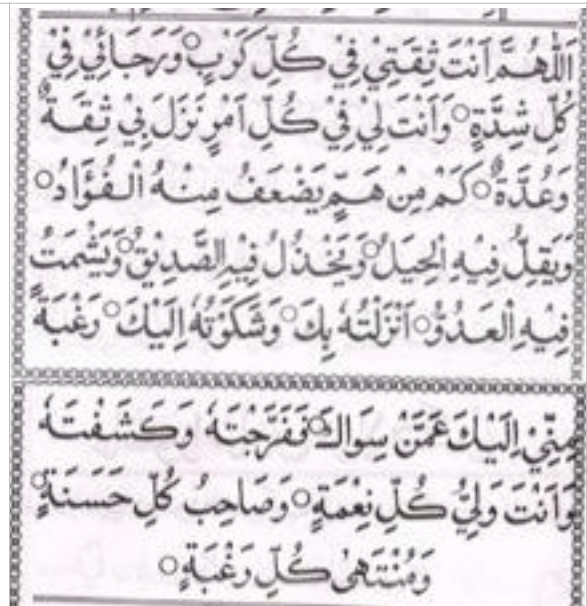 اَللّٰهُمَّ اَنْتَ ثِقَتِيْ فِيْ كُلِّ كَرْبٍ○ وَرَجَائِيْ فِيْ
كُلِّ شِدَّةٍ○ وَاَنْتَ لِيْ فِيْ كُلِّ اَمْرٍ نَزَلَ بِيْ ثِقَةٌ
وَعُدَّةٌ○ كَمْ مِنْ هَمٍّ يَضْعَفُ مِنْهُ الْفُؤَادُ○
وَيَقِلُّ فِيْهِ الْحِيَلُ○ وَيَخْذُلُ فِيْهِ الصَّدِيْقُ○ وَيَشْمَتُ
فِيْهِ الْعَدُوُّ○ اَنْزَلْتُهٗ بِكَ○ وَشَكَوْتُهٗ اِلَيْكَ○ رَغْبَةً
مِنِّيْ اِلَيْكَ عَمَّنْ سِوَاكَ○ فَفَرَّجْتَهٗ وَكَشَفْتَهٗ
وَاَنْتَ وَلِيُّ كُلِّ نِعْمَةٍ○ وَصَاحِبُ كُلِّ حَسَنَةٍ○
وَمُنْتَهٰى كُلِّ رَغْبَةٍ○